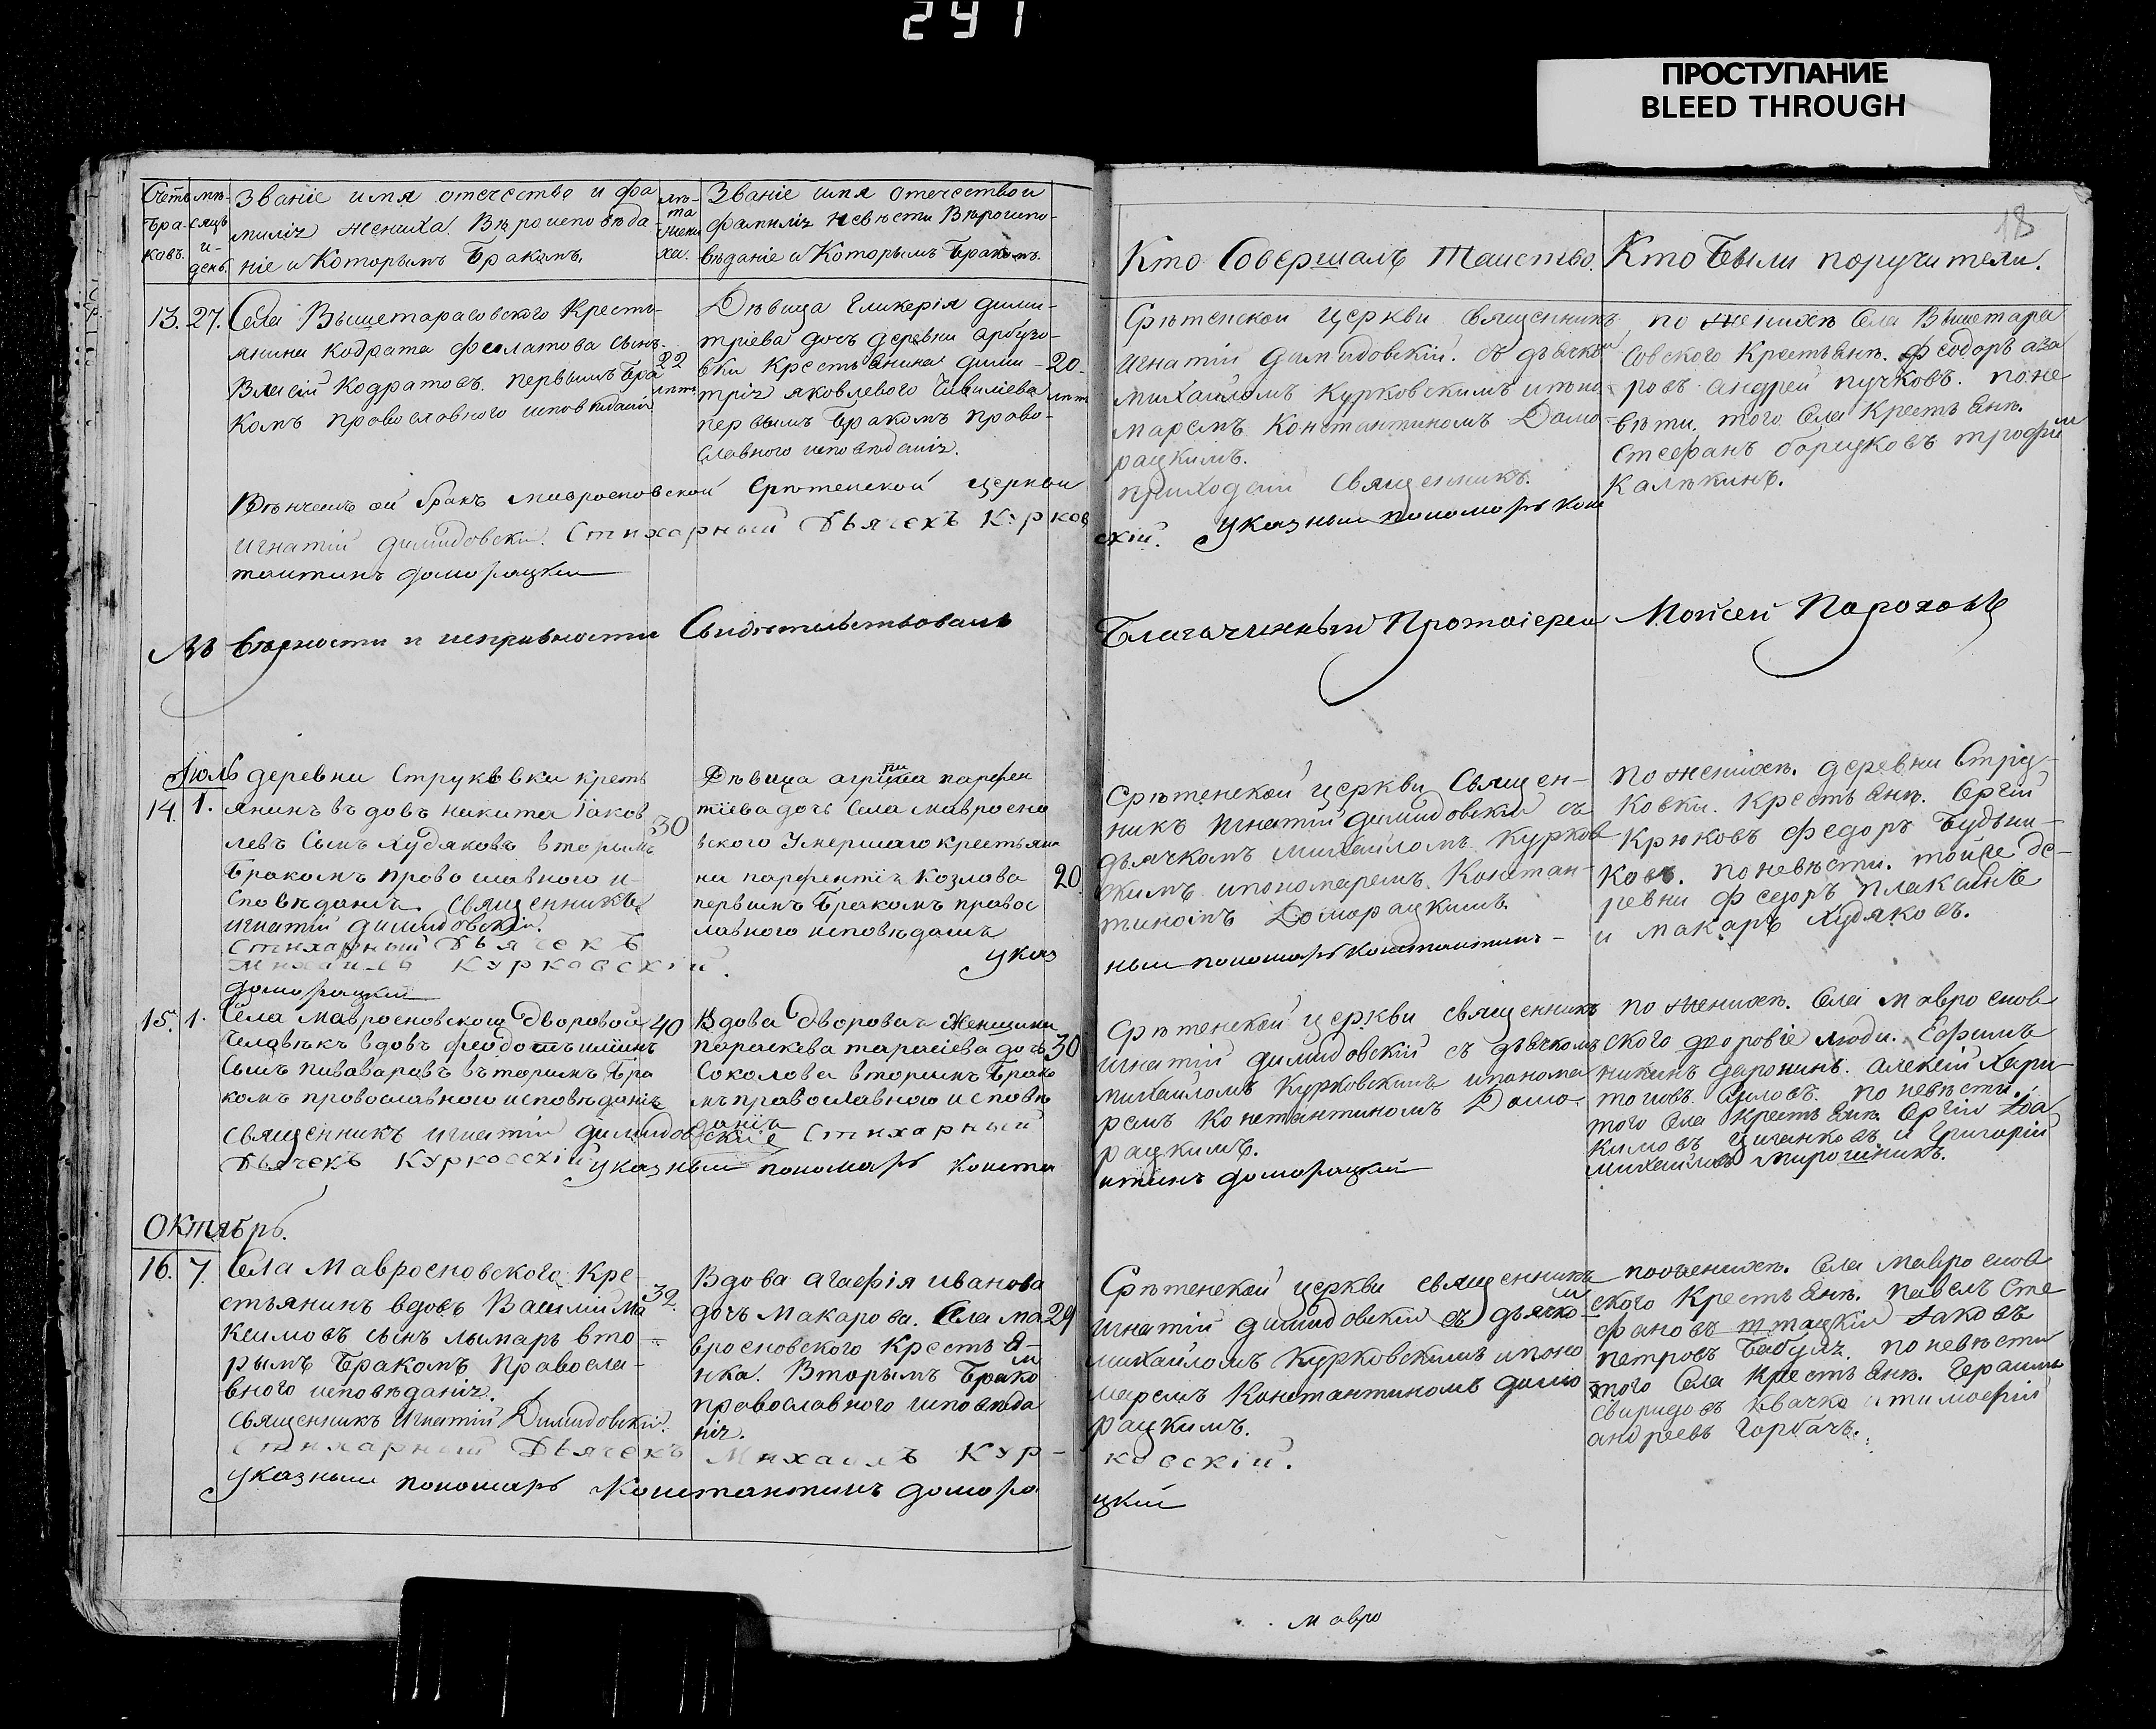 291
ПРОСТУПАНИЕ
BLEED THROUGH
18
Счетъ бра-ковъ.
мѣ-сяцъ и-день.
Званіе имя отечество и фа
миліи жениха. Вѣроисповѣда-
ніе и Которымъ Бракомъ.
лѣ-та жени ха.
Званіе имя отечество и
фамиліи невѣсты Вѣроиспо-
вѣданіе и Которымъ Бракомъ.
Кто Совершалъ Таинство.
Кто Были поручители.
13. 27.
Села Вышетарасовского Кресть-
янина Кодрата Филатова сынъ
Власій Кодратовъ. первымъ Бра
комъ православного исповѣданія
22
лѣтъ
Дѣвица Гликерія дими-
тріева дочь деревни арбузо-
вки Крестьянина дими-
трія яковлевого
первымъ Бракомъ право-
славного исповѣданія.
20.
лѣтъ
Срѣтенской церкви священникъ
игнатій димидовскій. съ дьячкомъ
михайломъ Курковскимъ и поно
маремъ Константиномъ Домо
рацкимъ.
приходскій священникъ.
по женихѣ Села Вышетара
совского Крестьяне. Феодоръ аза
ровъ андрей пучковъ. по не
вѣсти. того Села Крестьяне.
Стефанъ борщковъ трофим
Калѣкинъ.
Вѣнчалъ сей бракъ мавроеновской Срѣтенской церкви
игнатій димидовскій. Стихарный Дьячекъ Курков
скій. указный пономарь Конс
тантинъ доморацкій
Въ вѣрности и исправности Свидѣтельствовалъ Благочинный Протоіерей Мойсей Пороховъ
Іюль
14. 1.
деревни Струковки кресть
янинъ вдовъ никита Іаков
левъ Сынъ Худяковъ вторымъ
Бракомъ православного и-
сповѣданія. Священникъ
игнатій димидовскій.
Стихарный Дьячекъ
Михаилъ Курковскій.
доморацкій
30
Дѣвица агрипина парфен
тіева дочь Села мавроено
вского Умершаго крестьяни
на парфентія Козлова
первымъ Бракомъ правос
лавного исповѣданія
указ
20.
Срѣтенской церкви Священ-
никъ Игнатій димидовскій съ
дьячкомъ михайломъ Курков
скимъ и пономаремъ Констан-
тиномъ Доморацкимъ.
ный пономарь Константинъ-
по женихѣ. деревни Стру-
ковки. Крестьяне. Сргій
Крюковъ Федоръ Будни-
ковъ. по невѣсти. тойже де-
ревни Федоръ плаканъ
и макаръ Худяковъ.
15. 1.
Села мавроеновского Дворовой
Человѣкъ вдовъ феодотъ
Сынъ пивоваровъ вторымъ Бра
комъ православного исповѣданія
Священникъ игнатій димидовскій Стихарный
Дьячекъ Курковскій указный пономарь Конста
40
Вдова Дворовая Женщина
параскева тарасіева дочь
Соколова вторымъ Брако
мъ православного исповѣ
данія
30
Срѣтенской церкви священникъ
игнатій димидовскій съ дьячкомъ
михайломъ Курковскимъ и понома
ремъ Константиномъ Домо-
рацкимъ.
нтинъ доморацкій
по женихѣ. Села мавроенов
ского дворовіе люди. Ефимъ
никинъ даронинъ. алексій Хари-
тоновъ. по невѣсти.
того Села Крестьяне. Сргій Іоа
кимовъ Циганковъ и Григорій
михайловъ мирошникъ.
Октябрь.
16. 7.
Села Мавроеновского Кре
стьянинъ вдовъ Василій Ма
ксимовъ сынъ лымарь вто-
рымъ Бракомъ Правосла-
вного исповѣданія.
Священникъ Игнатій Димидовскій.
Стихарный Дьячекъ Михаилъ Кур-
ковскій.
указный пономарь Константинъ домора
цкій
32.
Вдова агафія иванова
дочь Макарова. Села ма
вроеновского Крестья-
нка. Вторымъ Бракомъ
православного исповѣда
нія.
29
Срѣтенской церкви священникъ
игнатій димидовскій съ дьячкомъ
михайломъ Курковскимъ и поно
маремъ Константиномъ домо
рацкимъ.
по женихѣ. Села мавроенов
ского Крестьяне. павелъ Сте
фановъ Іаковъ
петровъ Бабула. по невѣсти
того Села Крестьяне. Герасимъ
Свиридовъ Квачко и тимофій
андреевъ Горбачъ.
мавро